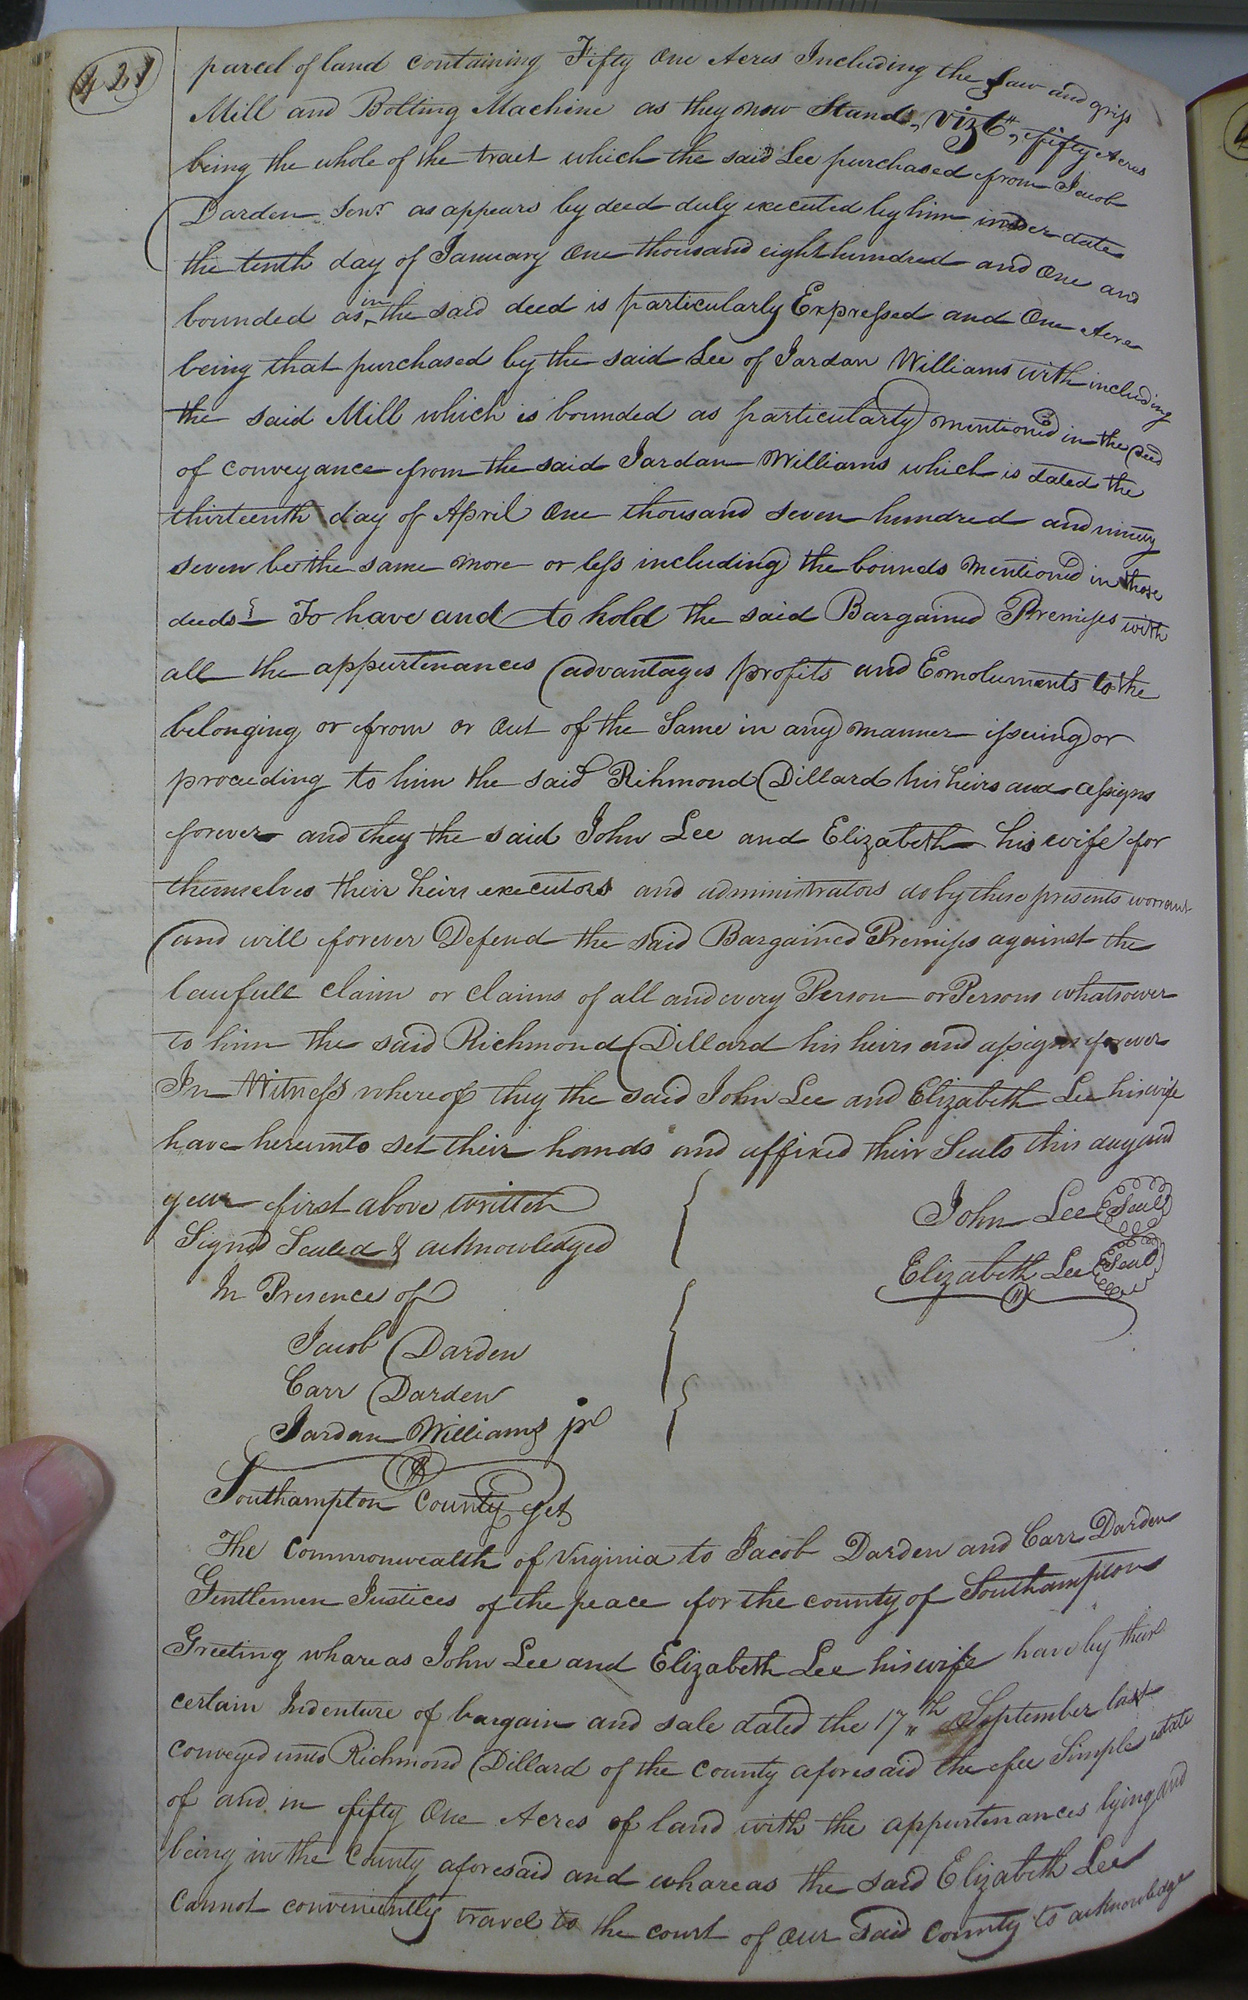 421
parcel of land containing Fifty One Acres Including the Saw and grist
Mill and Bolting Machine as they now Stand, Vizt, fifty Acres
being the whole of the tract which the said Lee purchased from Jacob
Darden Senr as appears by deed duly executed by him under date
the tenth day of January One thousand eight hundred and One and
bounded as in the said deed is particularly Expressed and One Acre
being that purchased by the said Lee of Jordan Williams with including
the said Mill which is bounded as particularly mentioned in the Deed
of conveyance from the said Jordan Williams which is dated the
thirteenth day of April One thousand seven hundred and ninety
seven be the same more or less including the bounds mentioned in those
deeds To have and to hold the said Bargained Premises with
all the appurtenances advantages profits and Emoluments to the
belonging or from or out of the Same in any manner issuing or
proceeding to him the said Richmond Dillard his heirs and assigns
forever and they the said John Lee and Elizabeth his wife for
themselves their heirs executors and administrators do by these presents warrant
and will forever Defend the said Bargained Premises against the
lawfull claim or claims of all and every Person or Persons whatsoever
to him the said Richmond Dillard his heirs and assigns forever
In Witness whereof they the said John Lee and Elizabeth Lee his wife
have hereunto set their hands and affixed their Seals this day and
year first above written
John Lee Seal
Signed Sealed & acknowledged
Elizabeth Lee Seal
In Presence of
Jacob Darden
Carr Darden
Jordan Williams jr
Southampton County Sct
The Commonwealth of Virginia to Jacob Darden and Carr Darden
Gentlemen Justices of the peace for the county of Southampton
Greeting whareas John Lee and Elizabeth Lee his wife have by their
certain Indenture of bargain and sale dated the 17th September last
conveyed unto Richmond Dillard of the county aforesaid the fee Simple estate
of and in fifty One Acres of land with the appurtenances lying and
being in the County aforesaid and whareas the said Elizabeth Lee
Cannot conveniently travel to the court of our said County to acknowledge